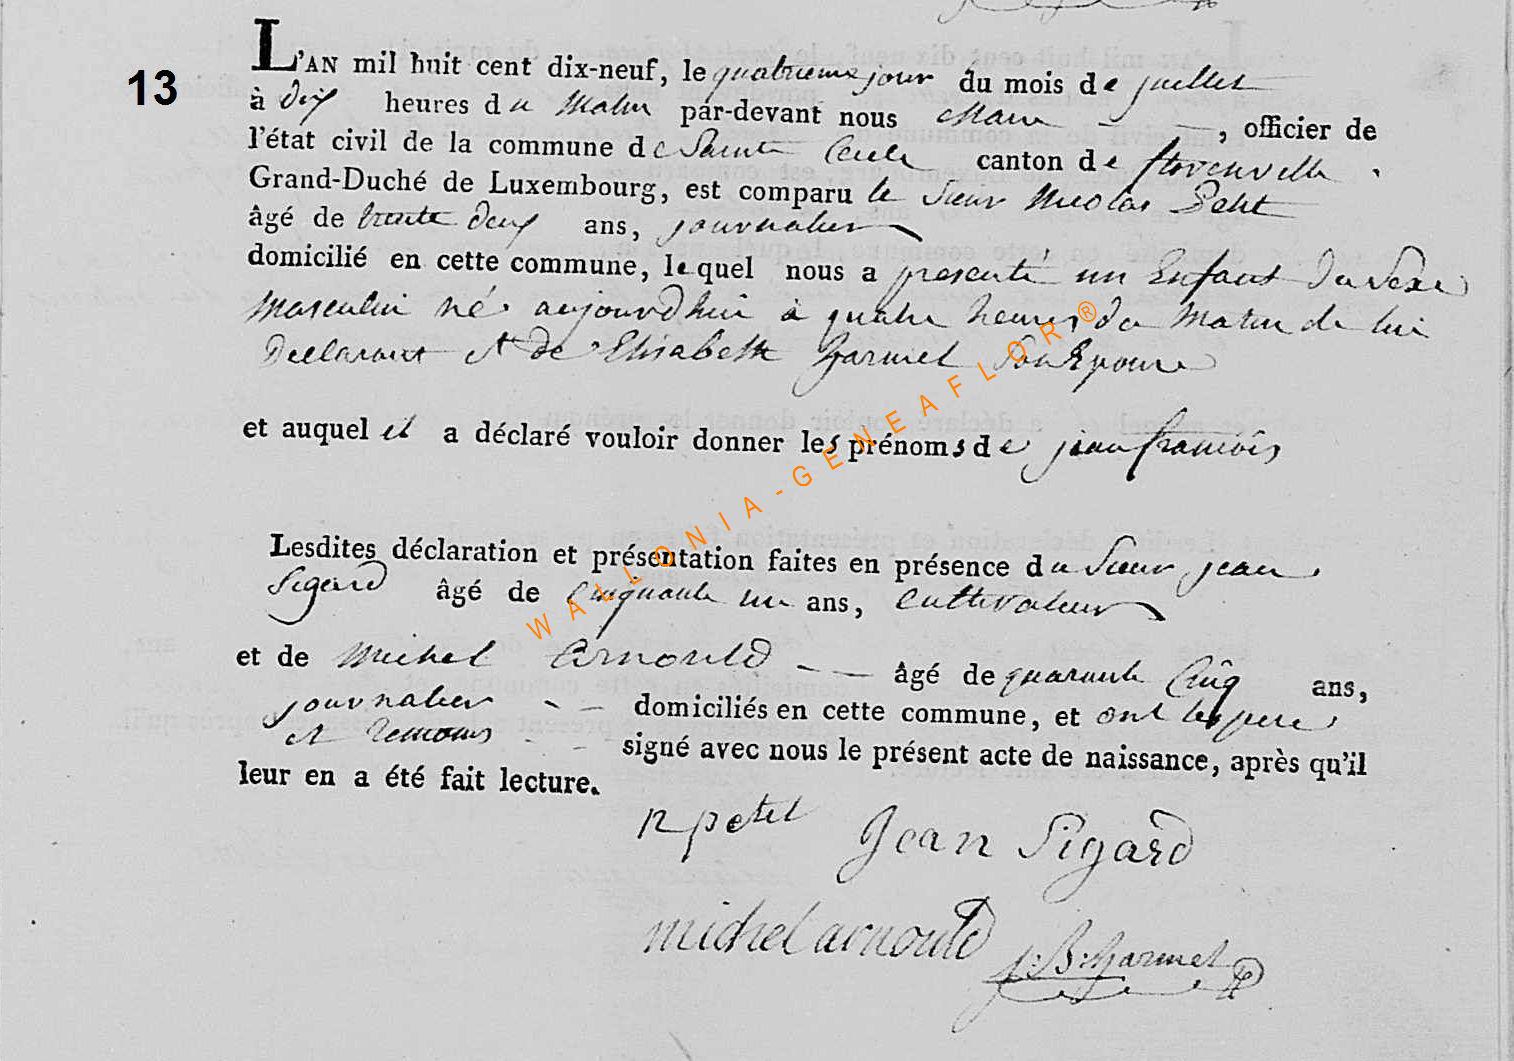 13
L'AN mil huit cent dix-neuf, le quatrieme jour du mois de juillet
à dix heures du Matin par-devant nous Maire , officier de
l'état civil de la commune de Sainte Cecile canton de florenville .
Grand-Duché de Luxembourg, est comparu le Sieur Nicolas Petit
âgé de trente deux ans, journalier
domicilié en cette commune, lequel nous a presenté un Enfant du Sexe
Masculin né aujourd'hui à quatre heures du Matin de lui
Declarant et de Elisabeth harmel Son Epouse
et auquel il a déclaré vouloir donner les prénoms de jean françois
Lesdites déclaration et présentation faites en présence du Sieur jean
Sigard âgé de Cinquante un ans, Cultivateur
et de Michel Arnould âgé de quarante Cinq ans,
journalier domiciliés en cette commune, et ont les pere
et temoins signé avec nous le présent acte de naissance, après qu'il
leur en a été fait lecture.
n petit Jean Sigard
michel arnould j:B:harmel
WALLONIA-GENEAFLOR®